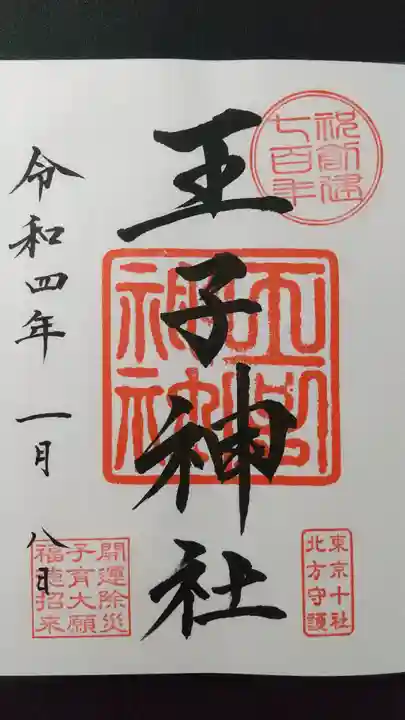 祝創建
七百年
王子神社
王子
神社
東京十社
北方守護
令和四年 一月 八日
開運除災
子育大願
福徳招来